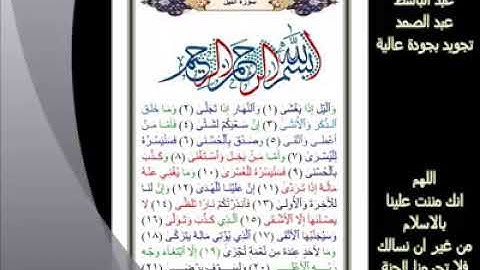 سورة الليل
بسم الله الرحمن الرحيم
وَاللَّيْلِ إِذَا يَغْشَى (١) وَالنَّهَارِ إِذَا تَجَلَّى (٢) وَمَا خَلَقَ
الذَّكَرَ وَالْأُنْثَى (٣) إِنَّ سَعْيَكُمْ لَشَتَّى (٤) فَأَمَّا مَنْ
أَعْطَى وَاتَّقَى (٥) وَصَدَّقَ بِالْحُسْنَى (٦) فَسَنُيَسِّرُهُ
لِلْيُسْرَى (٧) وَأَمَّا مَنْ بَخِلَ وَاسْتَغْنَى (٨) وَكَذَّبَ
بِالْحُسْنَى (٩) فَسَنُيَسِّرُهُ لِلْعُسْرَى (١٠) وَمَا يُغْنِي عَنْهُ
مَالُهُ إِذَا تَرَدَّى (١١) إِنَّ عَلَيْنَا لَلْهُدَى (١٢) وَإِنَّ لَنَا
لَلْآخِرَةَ وَالْأُولَى (١٣) فَأَنْذَرْتُكُمْ نَارًا تَلَظَّى (١٤) لَا
يَصْلَاهَا إِلَّا الْأَشْقَى (١٥) الَّذِي كَذَّبَ وَتَوَلَّى (١٦)
وَسَيُجَنَّبُهَا الْأَتْقَى (١٧) الَّذِي يُؤْتِي مَالَهُ يَتَزَكَّى (١٨)
وَمَا لِأَحَدٍ عِنْدَهُ مِنْ نِعْمَةٍ تُجْزَى (١٩) إِلَّا ابْتِغَاءَ وَجْهِ
رَبِّهِ الْأَعْلَى (٢٠) وَلَسَوْفَ يَرْضَى (٢١)
عبد الباسط
عبد الصمد
تجويد بجودة عالية
اللهم
انك مننت علينا
بالاسلام
من غير ان نسالك
فلا تحرمنا الجنة